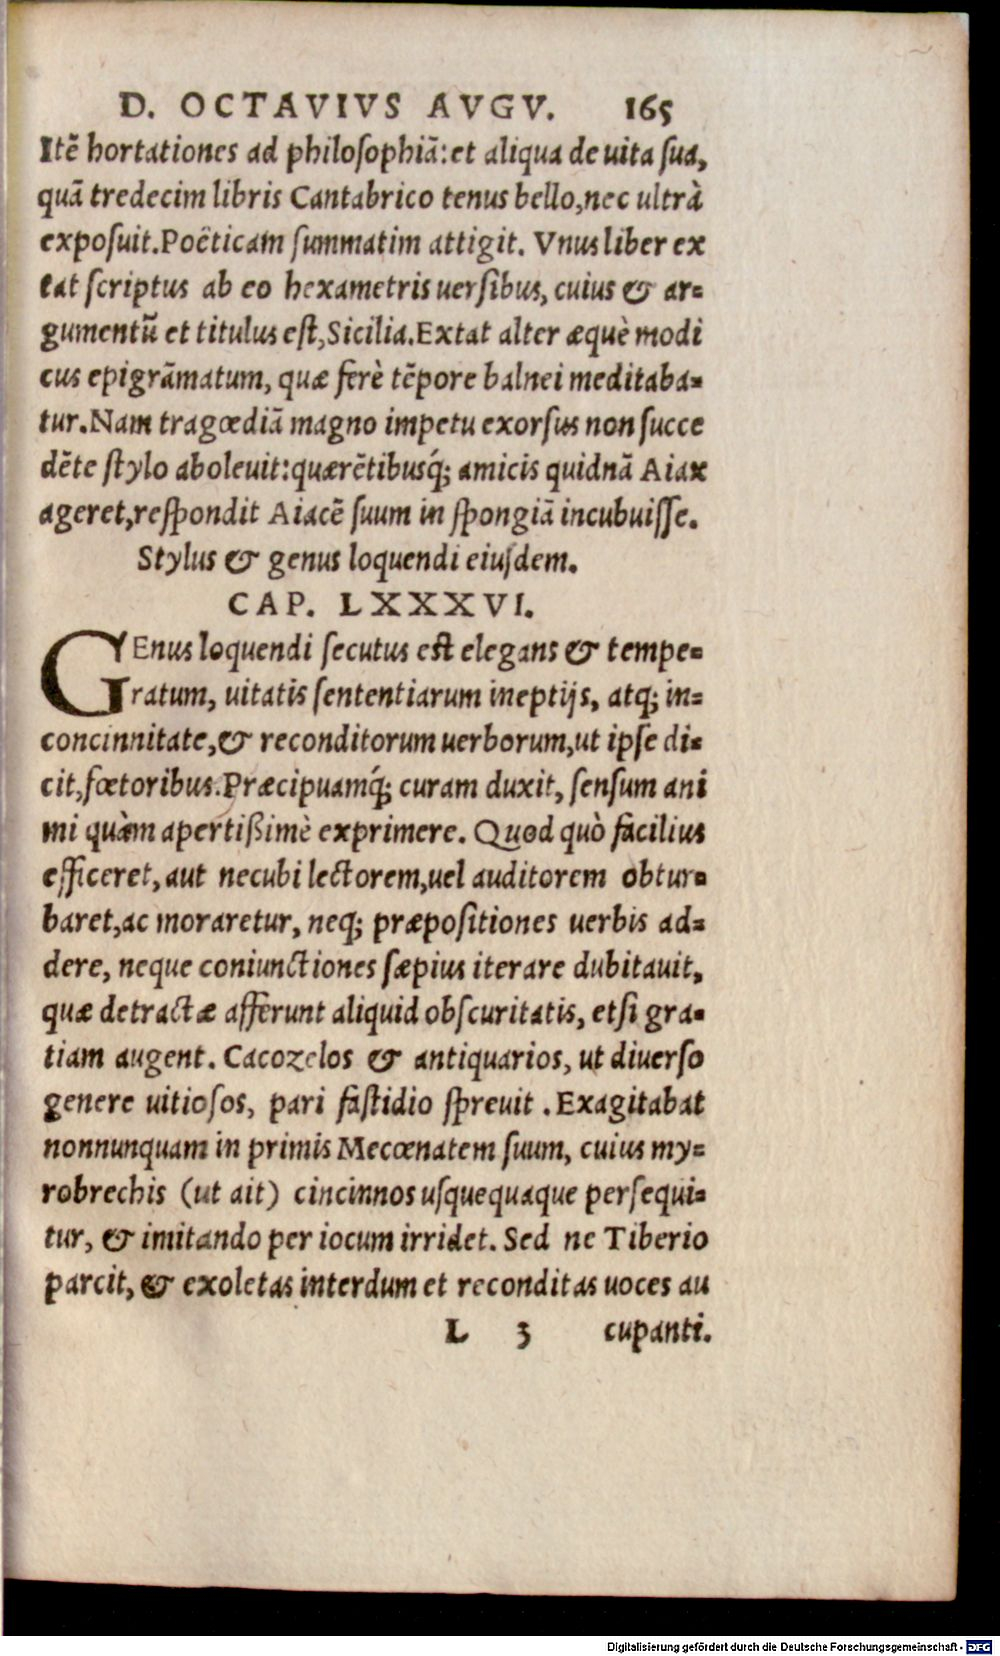 D. OCTAVIVS AVGV. 165
Itẽ hortationes ad philoſophiã: et aliqua de uita ſua,
quã tredecim libris Cantabrico tenus bello, nec ultrà
expoſuit. Poëticam ſummatim attigit. Vnus liber ex
tat ſcriptus ab eo hexametris uerſibus, cuius & ar-
gumentũ et titulus eſt, Sicilia. Extat alter æquè modi
cus epigrãmatum, quæ ferè tẽpore balnei meditaba-
tur. Nam tragœdiã magno impetu exorſus non ſucce
dẽte ſtylo aboleuit: quærẽtibusq́; amicis quidnã Aiax
ageret, reſpondit Aiacẽ ſuum in ſpongiã incubuiſſe.
Stylus & genus loquendi eiuſdem.
CAP. LXXXVI.
GEnus loquendi ſecutus eſt elegans & tempe-
ratum, uitatis ſententiarum ineptijs, atq; in-
concinnitate, & reconditorum uerborum, ut ipſe di-
cit, fœtoribus. Præcipuamq́; curam duxit, ſenſum ani
mi quàm apertißimè exprimere. Quod quò facilius
efficeret, aut necubi lectorem, uel auditorem obtur-
baret, ac moraretur, neq; præpoſitiones uerbis ad-
dere, neque coniunctiones ſæpius iterare dubitauit,
quæ detractæ afferunt aliquid obſcuritatis, etſi gra-
tiam augent. Cacozelos & antiquarios, ut diuerſo
genere uitioſos, pari faſtidio ſpreuit. Exagitabat
nonnunquam in primis Mecœnatem ſuum, cuius my-
robrechis (ut ait) cincinnos uſquequaque perſequi-
tur, & imitando per iocum irridet. Sed ne Tiberio
parcit, & exoletas interdum et reconditas uoces au
L 3 cupanti.
Digitalisierung gefördert durch die Deutsche Forschungsgemeinschaft - DFG